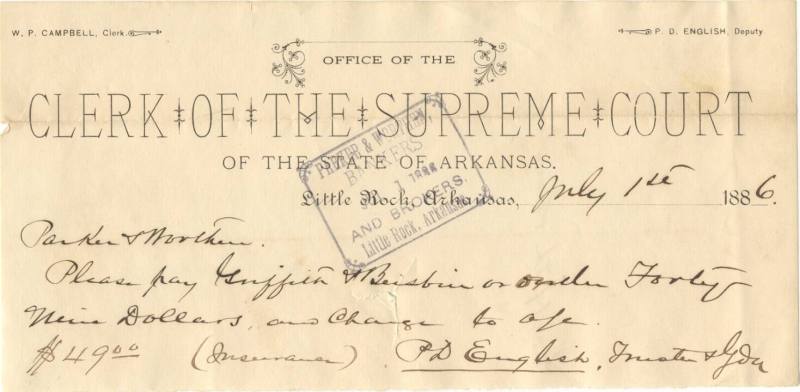 W. P. CAMPBELL, Clerk.
P. D. ENGLISH, Deputy
OFFICE OF THE
CLERK OF THE SUPREME COURT
OF THE STATE OF ARKANSAS.
Little Rock, Arkansas, July 1st 1886.
BANKERS
1 1886
AND BROKERS.
Little Rock, Arkansas
Parker & Worthen.
Please pay Griffith & or order Forty
Nine Dollars, and Charge to a/c.
$49.00 (Insurance) P D English, Trustee &